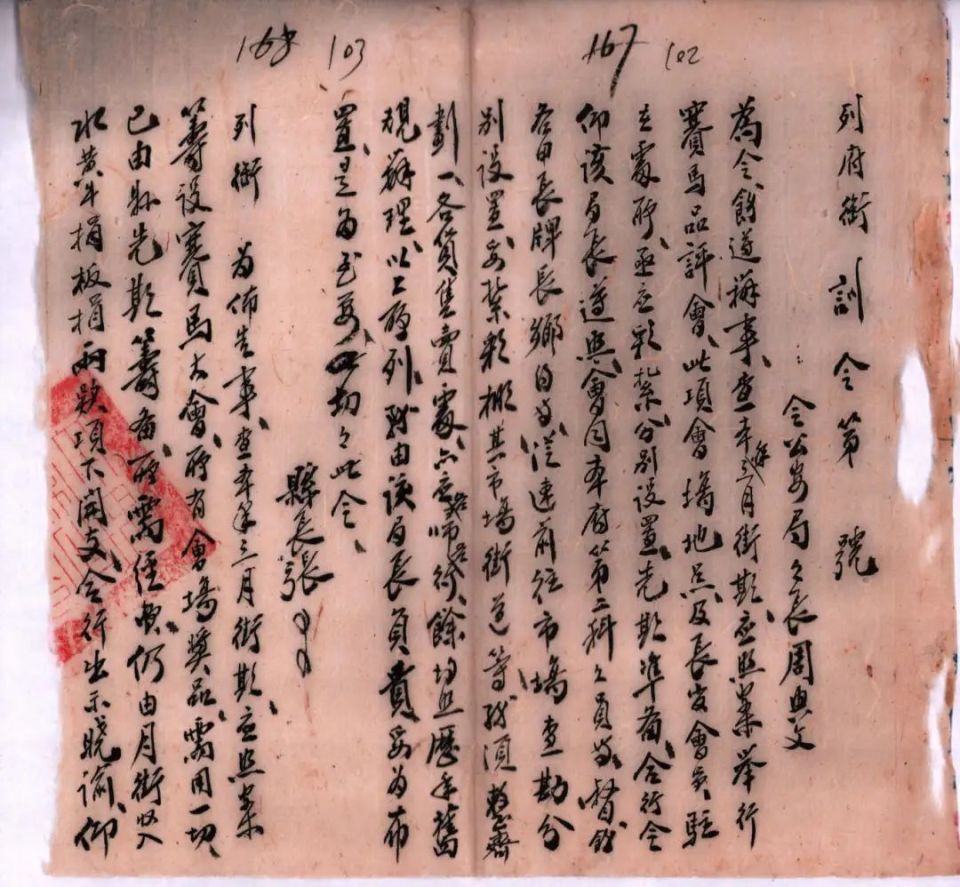 168 103 167 102
列府銜訓令第 號
令公安局局長周典文
為令飭遵辦事、查本年三月街期、應照案舉行
賽馬品評會、此項會塲地点、及長官會員駐
立處所、亟应彩扎、分别設置、先期準备、合行令
仰該局長遵照、會同本府第二科科員等、督飭
各甲長牌長鄉約等、從速前往市塲查勘、分
别設置、安紮彩棚、其市塲街道等、務須整齊
劃一、各貨售賣處、亦應 行、餘均照歷年舊
規辦理、以上所列、務由該局長負責妥为布
置、是为至要、切切此令、
縣長張
列銜 为佈告事、查本年三月街期、应照案
籌設賽馬大會、所有會塲獎品、需用一切、
已由縣先期籌备、所需經费、仍由月街收入
水黄牛捐板捐兩款項下開支、合行出示曉諭、仰